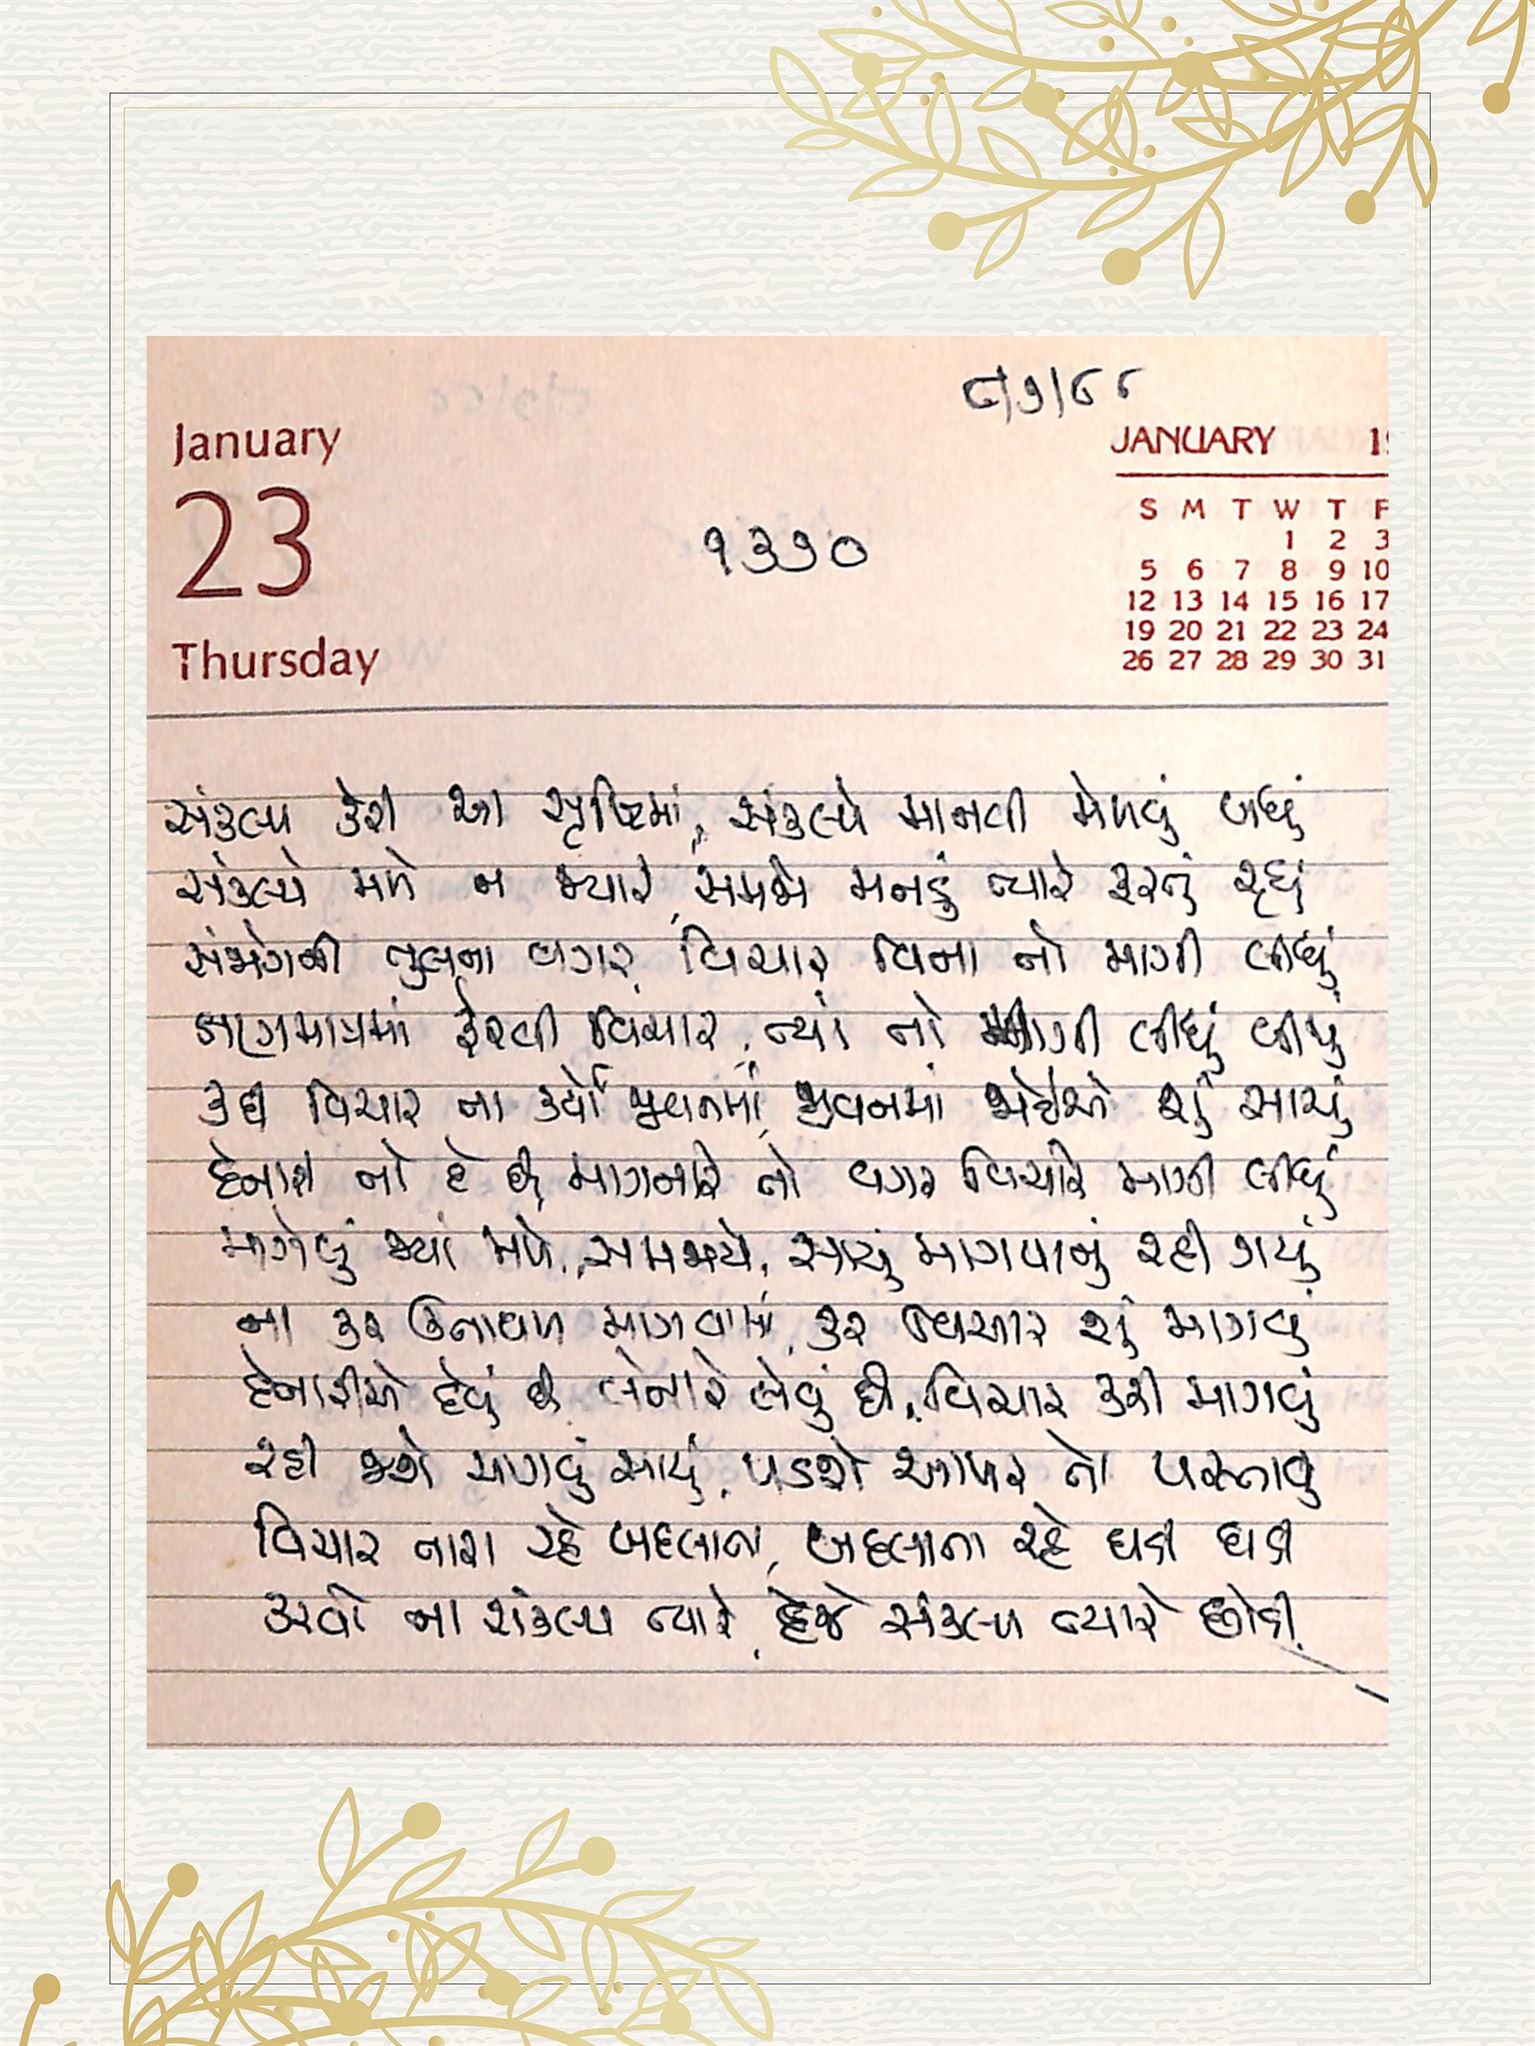 ૮/૭/૮૮
January
23
Thursday
૧૩૭૦
JANUARY 19
S M T W T F
1 2 3
5 6 7 8 9 10
12 13 14 15 16 17
19 20 21 22 23 24
26 27 28 29 30 31
સંકલ્પ કેરી આ સૃષ્ટિમાં, સંકલ્પે માનવી મેળવું બધું
સંકલ્પે મળે ન જ્યારે, સમજે મનડું ત્યારે કરતું રૂધું
સંજોગની તુલના વગર, વિચાર વિના તો માગી લીધું
ક્ષણમાત્રમાં ફેરવી વિચાર, ત્યાં તો માગી લીધું બીજું
કદી વિચાર ના કર્યો જીવનમાં, જીવનમાં જોઈએ શું સાચું
દેનારો તો દે છે, માગનારે તો વગર વિચારે માગી લીધું
માગેલું જ્યાં મળે, સમજાયે, સાચું માગવાનું રહી ગયું
ના કર ઉતાવળ માગવામાં, કર વિચાર શું માગવું
દેનારીએ દેવું છે, લેનારે લેવું છે, વિચાર કરી માગવું
રહી જાશે માગવું સાચું, પડશે આખર તો પસ્તાવું
વિચાર તારા રહે બદલાતા, બદલાતા રહે ઘડી ઘડી
કરવો ના સંકલ્પ ત્યારે, દેજે સંકલ્પ ત્યારે છોડી